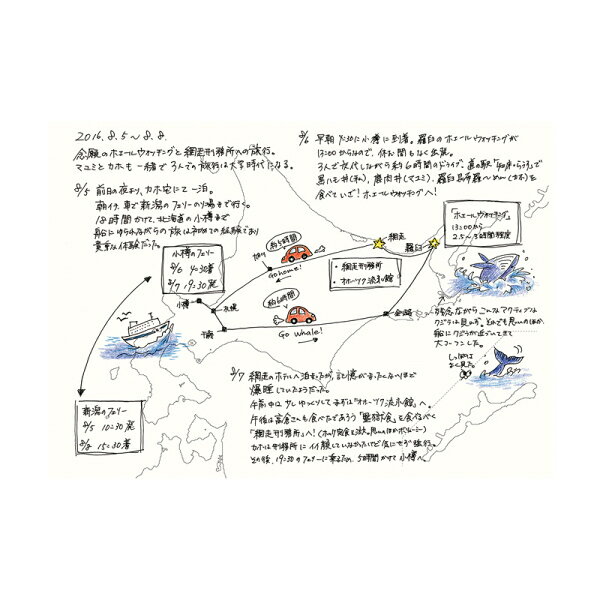 2016.8.5〜8.8.
念願のホエールウォッチングと網走刑務所への旅行。
マユミとカホも一緒で3人での旅行は大学時代になる。
8/5 前日の夜より、カホ宅に一泊。
朝イチ、車で新潟のフェリーの乗り場まで行く。
18時間かけて、北海道の小樽まで
船にゆられながらの旅は初めての経験であり
貴重な体験だった。
8/6 早朝 4:30に小樽に到着。羅臼のホエールウォッチングが
13:00からなので、休む間もなく出発。
3人で交代しながら約6時間のドライブ。道の駅
食べていざ!ホエールウォッチングへ!
「ホエールウォッチング」
13:00から
2.5〜3時間程度
小樽のフェリー
8/6 4:30着
8/7 19:30発
約5時間
Go home!
網走
羅臼
・網走刑務所
・オホーツク流氷館
小樽
札幌
千歳
約6時間
Go Whale!
釧路
残念ながらこんなアクティブな
クジラは見れず。それでも思いのほか
船にクジラが近づいてきて
大コーフンした。
しっぽは
よく見た。
新潟のフェリー
8/5 10:30発
8/8 15:30着
8/7 網走のホテルへ泊まったが、記憶がまったくないほど
爆睡していたようだった。
午前中は少しゆっくりしてまずは「オホーツク流氷館」へ。
「網走刑務所」へ!
その後、19:30のフェリーに乗るため、5時間かけて小樽へ。